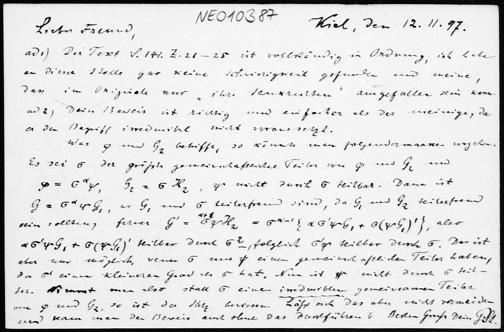 NEO10387
Kiel, den 12.11.97.
Lieber Freund,
ad 1) Der Text S. 141. Z. 21–25 ist vollständig in Ordnung, ich habe
an dieser Stelle gar keine Schwierigkeit gefunden und meine,
dass im Originale nur „ ihre ausgefallen sein kann.
ad 2) Dein Beweis ist richtig und einfacher als der meinige, da
er den Begriff irreducibel nicht voraussetzt.
Was φ und G₂ betrifft, so könnte man folgendermaassen vorgehen.
Es sei σ der größte gemeinschaftliche Teiler von φ und G₂ und
φ = σ^α ψ, G₂ = σ H₂, ψ nicht durch σ teilbar. Dann ist
G = σ^α ψ G₁, wo G₁ und σ teilerfremd sind, da G₁ und G₂ teilerfremd
sein sollten; ferner G' = σ^α ψ H₂ = σ^(α-1) {α σ'ψ G₁ + σ(ψ G₁)'}, also
α σ'ψ G₁ + σ(ψ G₁)' teilbar durch σ², folglich σ'ψ teilbar durch σ. Das ist
aber nur möglich, wenn σ und ψ einen gemeinschaftlichen Teiler haben,
da σ' einen kleineren Grad als σ hat. Nun ist ψ nicht durch σ teil-
bar. Nimmt man also statt σ einen irreduciblen gemeinsamen Teiler
von φ und G₂, so ist der Satz bewiesen. Läßt sich das aber nicht vermeiden
und kann man den Beweis auch ohne das durchführen? Besten Gruß Dein